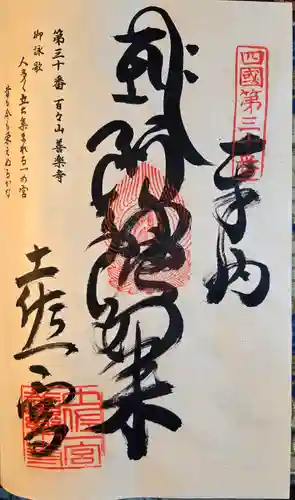 四國第三十番
奉納
阿弥陀如来
土佐一宮
第三十番 百々山 善楽寺
御詠歌
人多く立ち集まれる一の宮
昔も今も栄えぬるかな